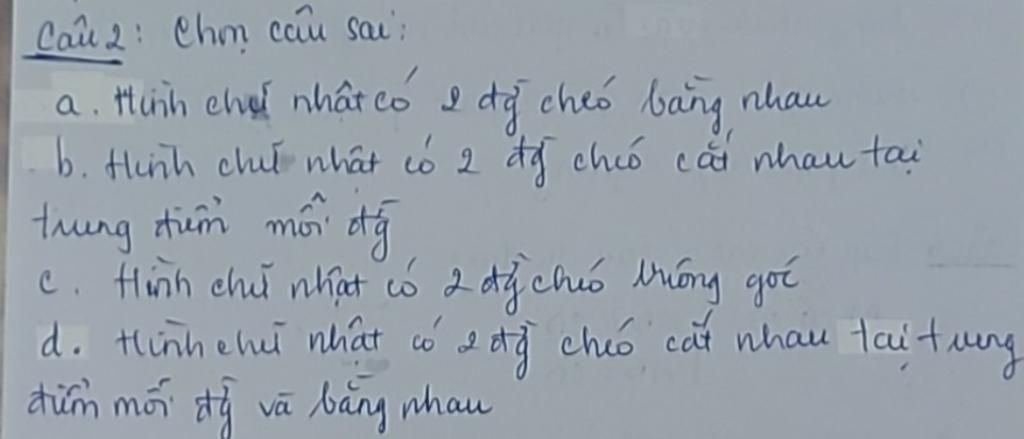 Câu 2: Chọn câu sai:
a. Hình chữ nhật có 2 đg̀ chéo bằng nhau
b. Hình chữ nhật có 2 đg̀ chéo cắt nhau tại
trung điểm mỗi đg̀
c. Hình chữ nhật có 2 đg̀ chéo vuông góc
d. Hình chữ nhật có 2 đg̀ chéo cắt nhau tại trung
điểm mỗi đg̀ và bằng nhau